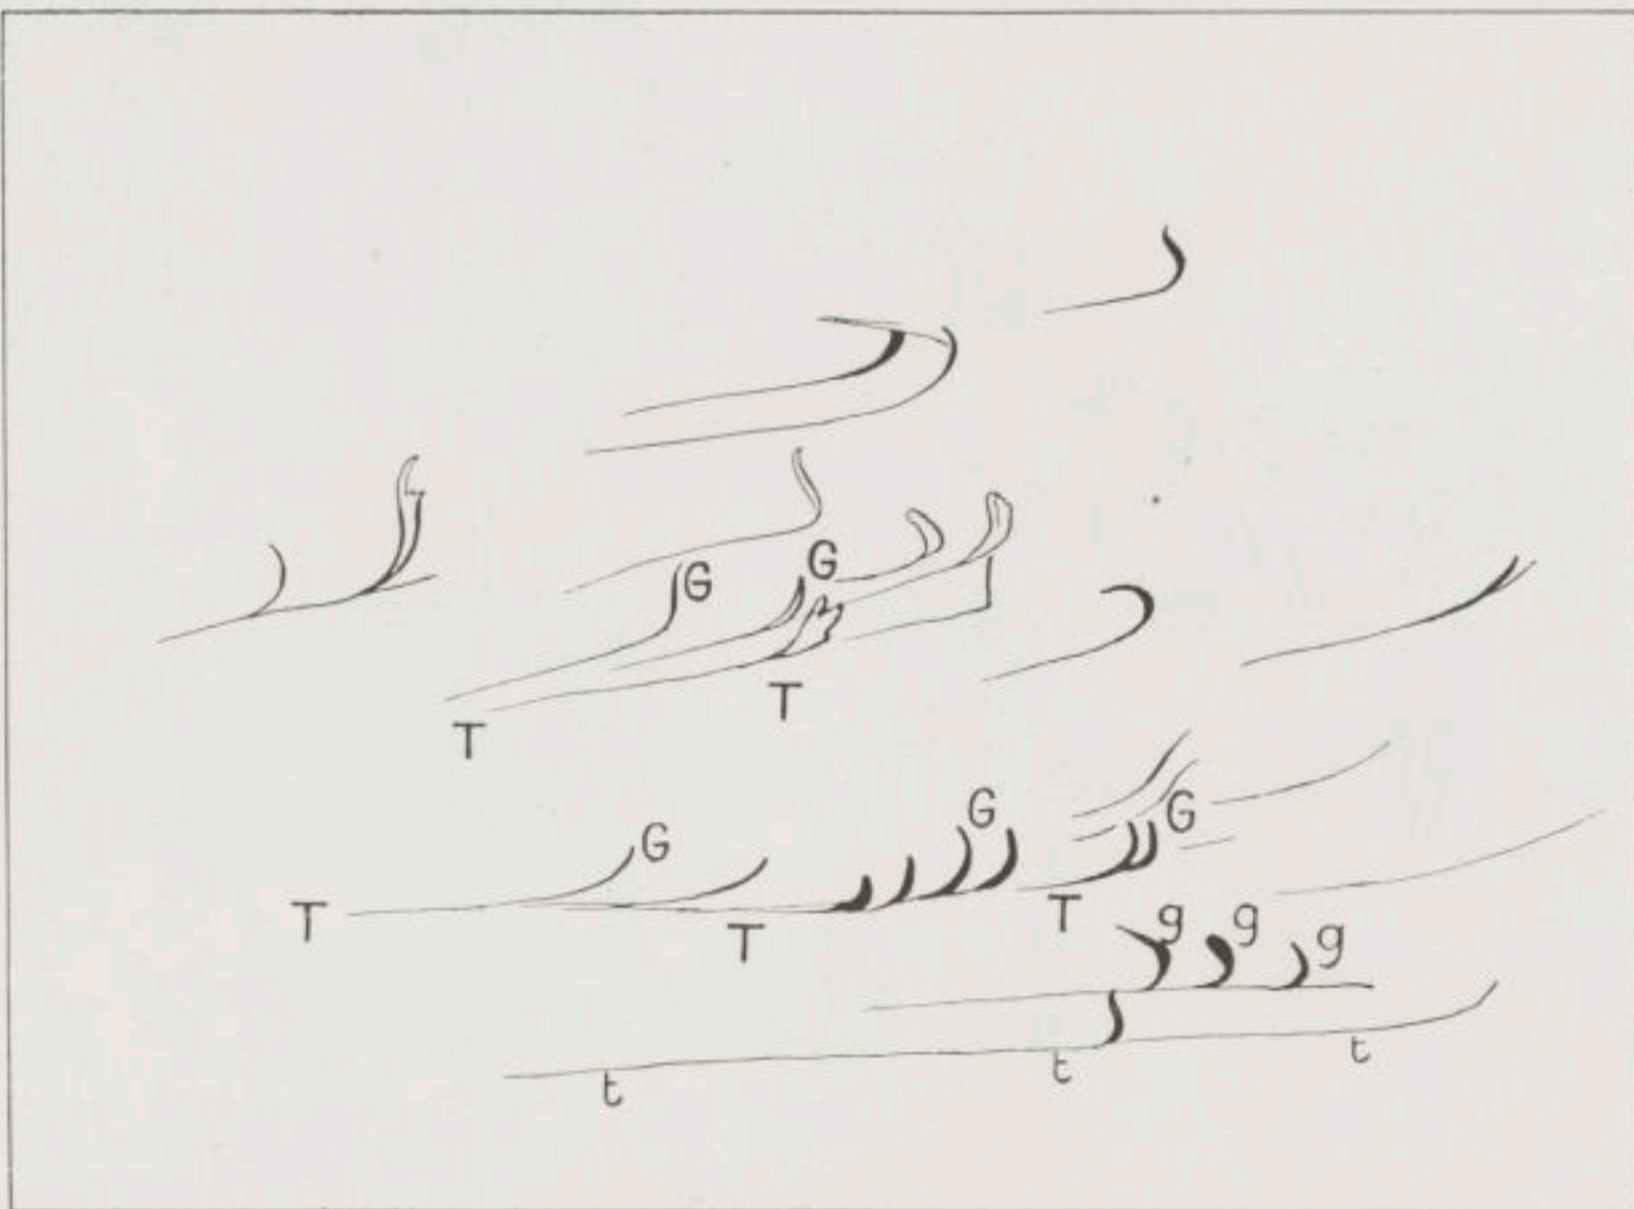 G
G
T
T
G
G
G
T
T
T
g g g
t
t
t